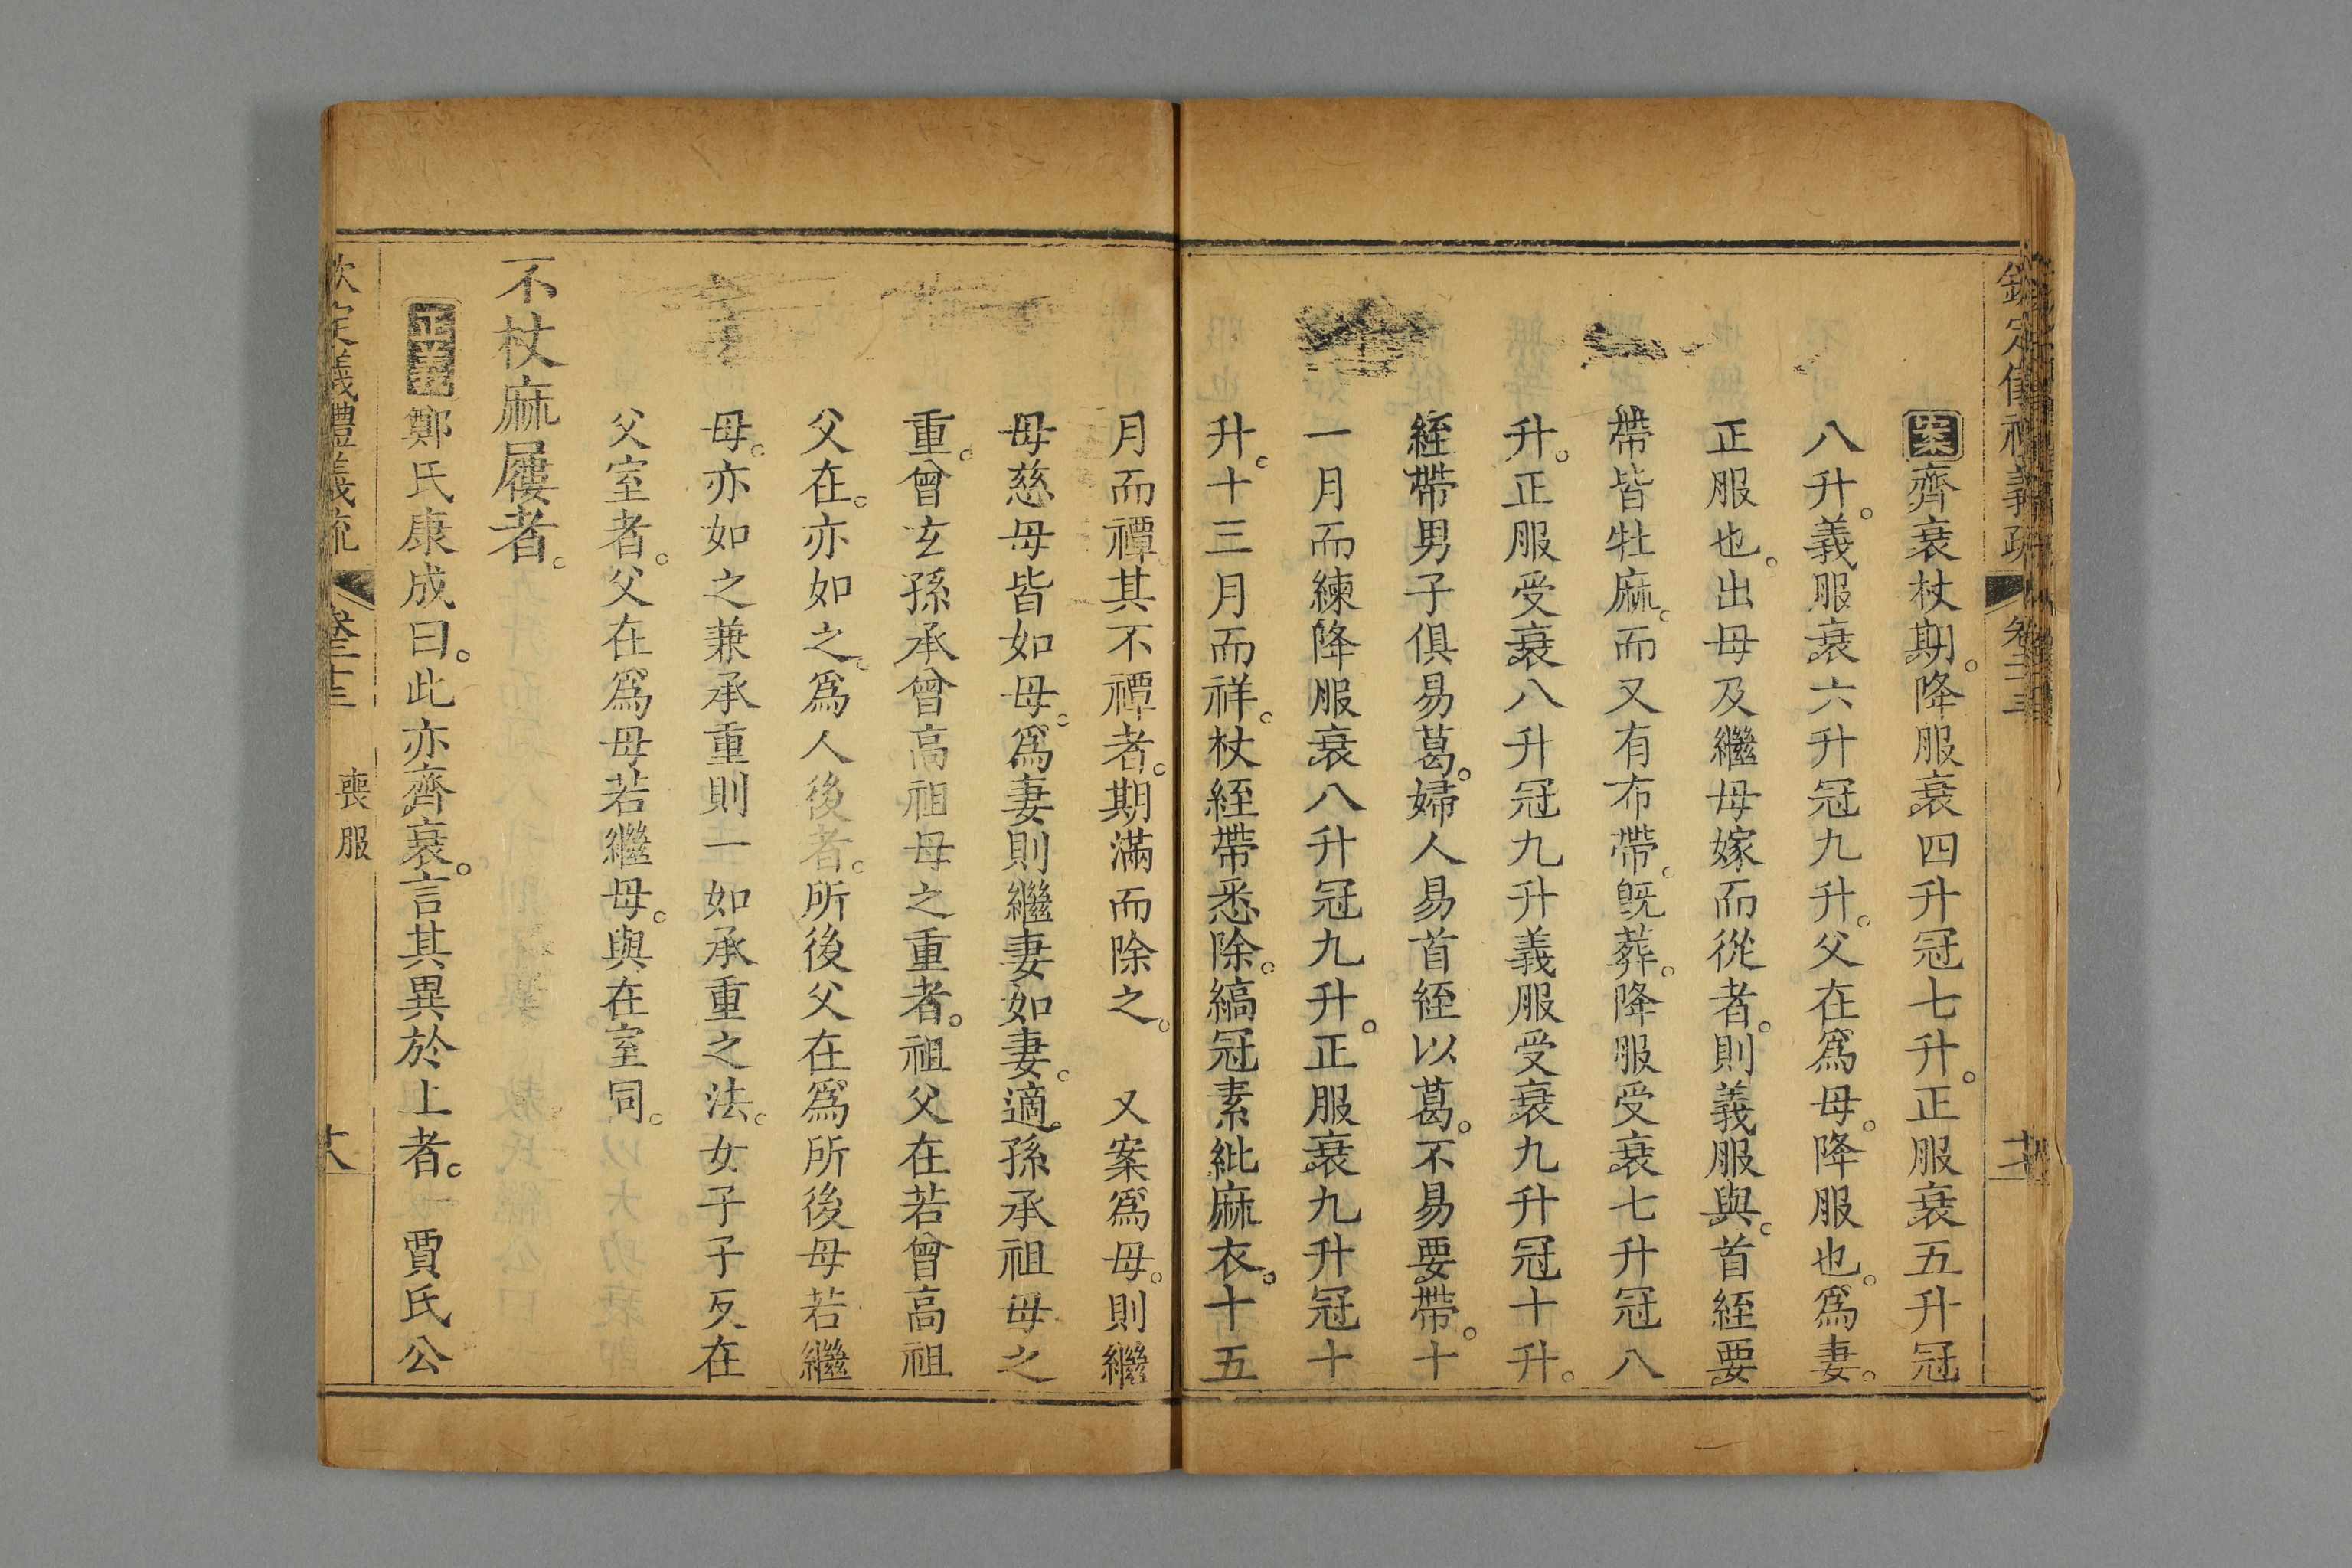 欽定儀禮義疏 卷二十三 十七
案齊衰杖期。降服衰四升冠七升。正服衰五升冠
八升。義服衰六升冠九升。父在爲母。降服也。爲妻。
正服也。出母及繼母嫁而從者。則義服與。首絰要
帶皆牡麻。而又有布帶。旣葬。降服受衰七升冠八
升。正服受衰八升冠九升義服受衰九升冠十升。
絰帶男子俱易葛。婦人易首絰以葛。不易要帶。十
一月而練降服衰八升冠九升。正服衰九升冠十
升。十三月而祥。杖絰帶悉除。縞冠素紕麻衣。十五
月而禫其不禫者。期滿而除之。 又案爲母。則繼
母慈母皆如母。爲妻則繼妻如妻。適孫承祖母之
重。曾玄孫承曾高祖母之重者。祖父在若曾高祖
父在。亦如之。爲人後者。所後父在爲所後母若繼
母。亦如之兼承重則一如承重之法。女子子反在
父室者。父在爲母若繼母。與在室同。
不杖麻屨者。
正義鄭氏康成曰。此亦齊衰。言其異於上者。 賈氏公
欽定儀禮義疏 卷二十三 喪服 十八